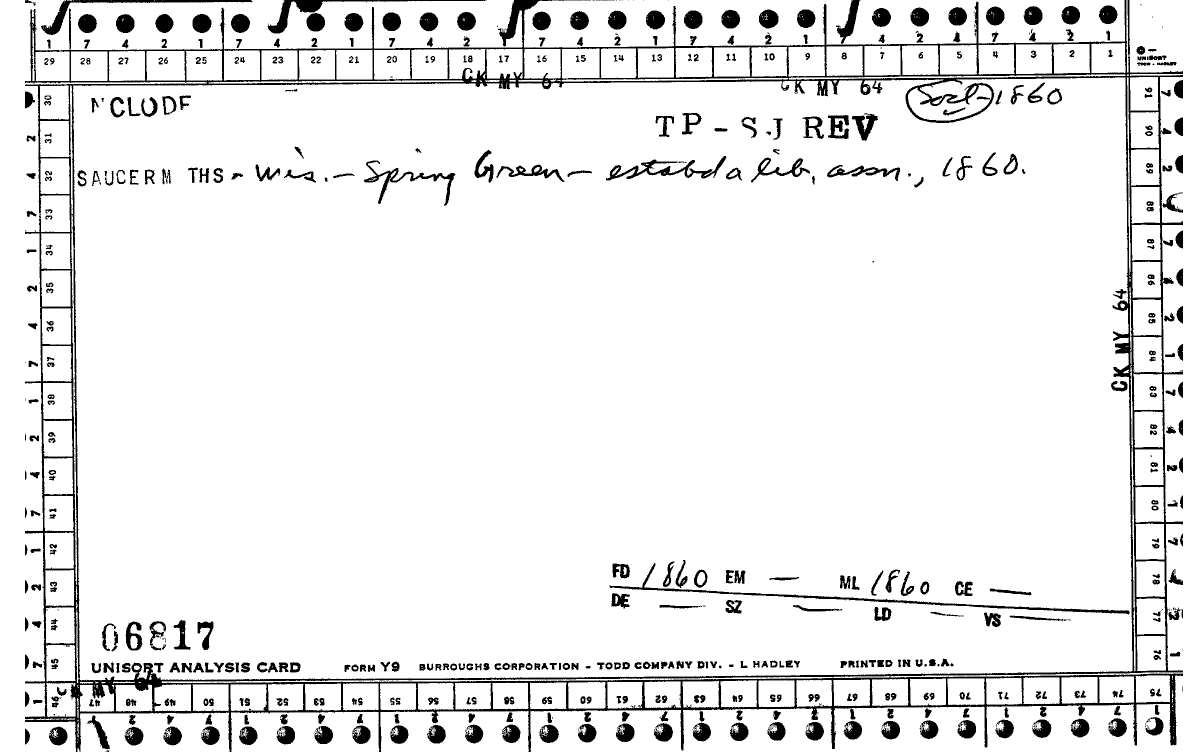 1 7 4 2 1 7 4 2 1 7 4 2 1 7 4 2 1 7 4 2 1 7 4 2 4 7 4 2 1
29 28 27 26 25 24 23 22 21 20 19 18 17 16 15 14 13 12 11 10 9 8 7 6 5 4 3 2 1
UNISORT
TODD - HADLEY
CK MY 64 CK MY 64
NCLUDE 1860
TP - SJ REV
SAUCERM THS - Wis. - Spring Green - estabd a lib. assn., 1860.
CK MY 64
FD 1860 EM — ML 1860 CE —
DE — SZ — LD — VS —
06817
UNISORT ANALYSIS CARD FORM Y9 BURROUGHS CORPORATION - TODD COMPANY DIV. - L HADLEY PRINTED IN U.S.A.
CK MY 64
30 31 32 33 34 35 36 37 38 39 40 41 42 43 44 45
46 47 48 49 50 51 52 53 54 55 56 57 58 59 60 61 62 63 64 65 66 67 68 69 70 71 72 73 74 75
76 77 78 79 80 81 82 83 84 85 86 87 88 89 90 91